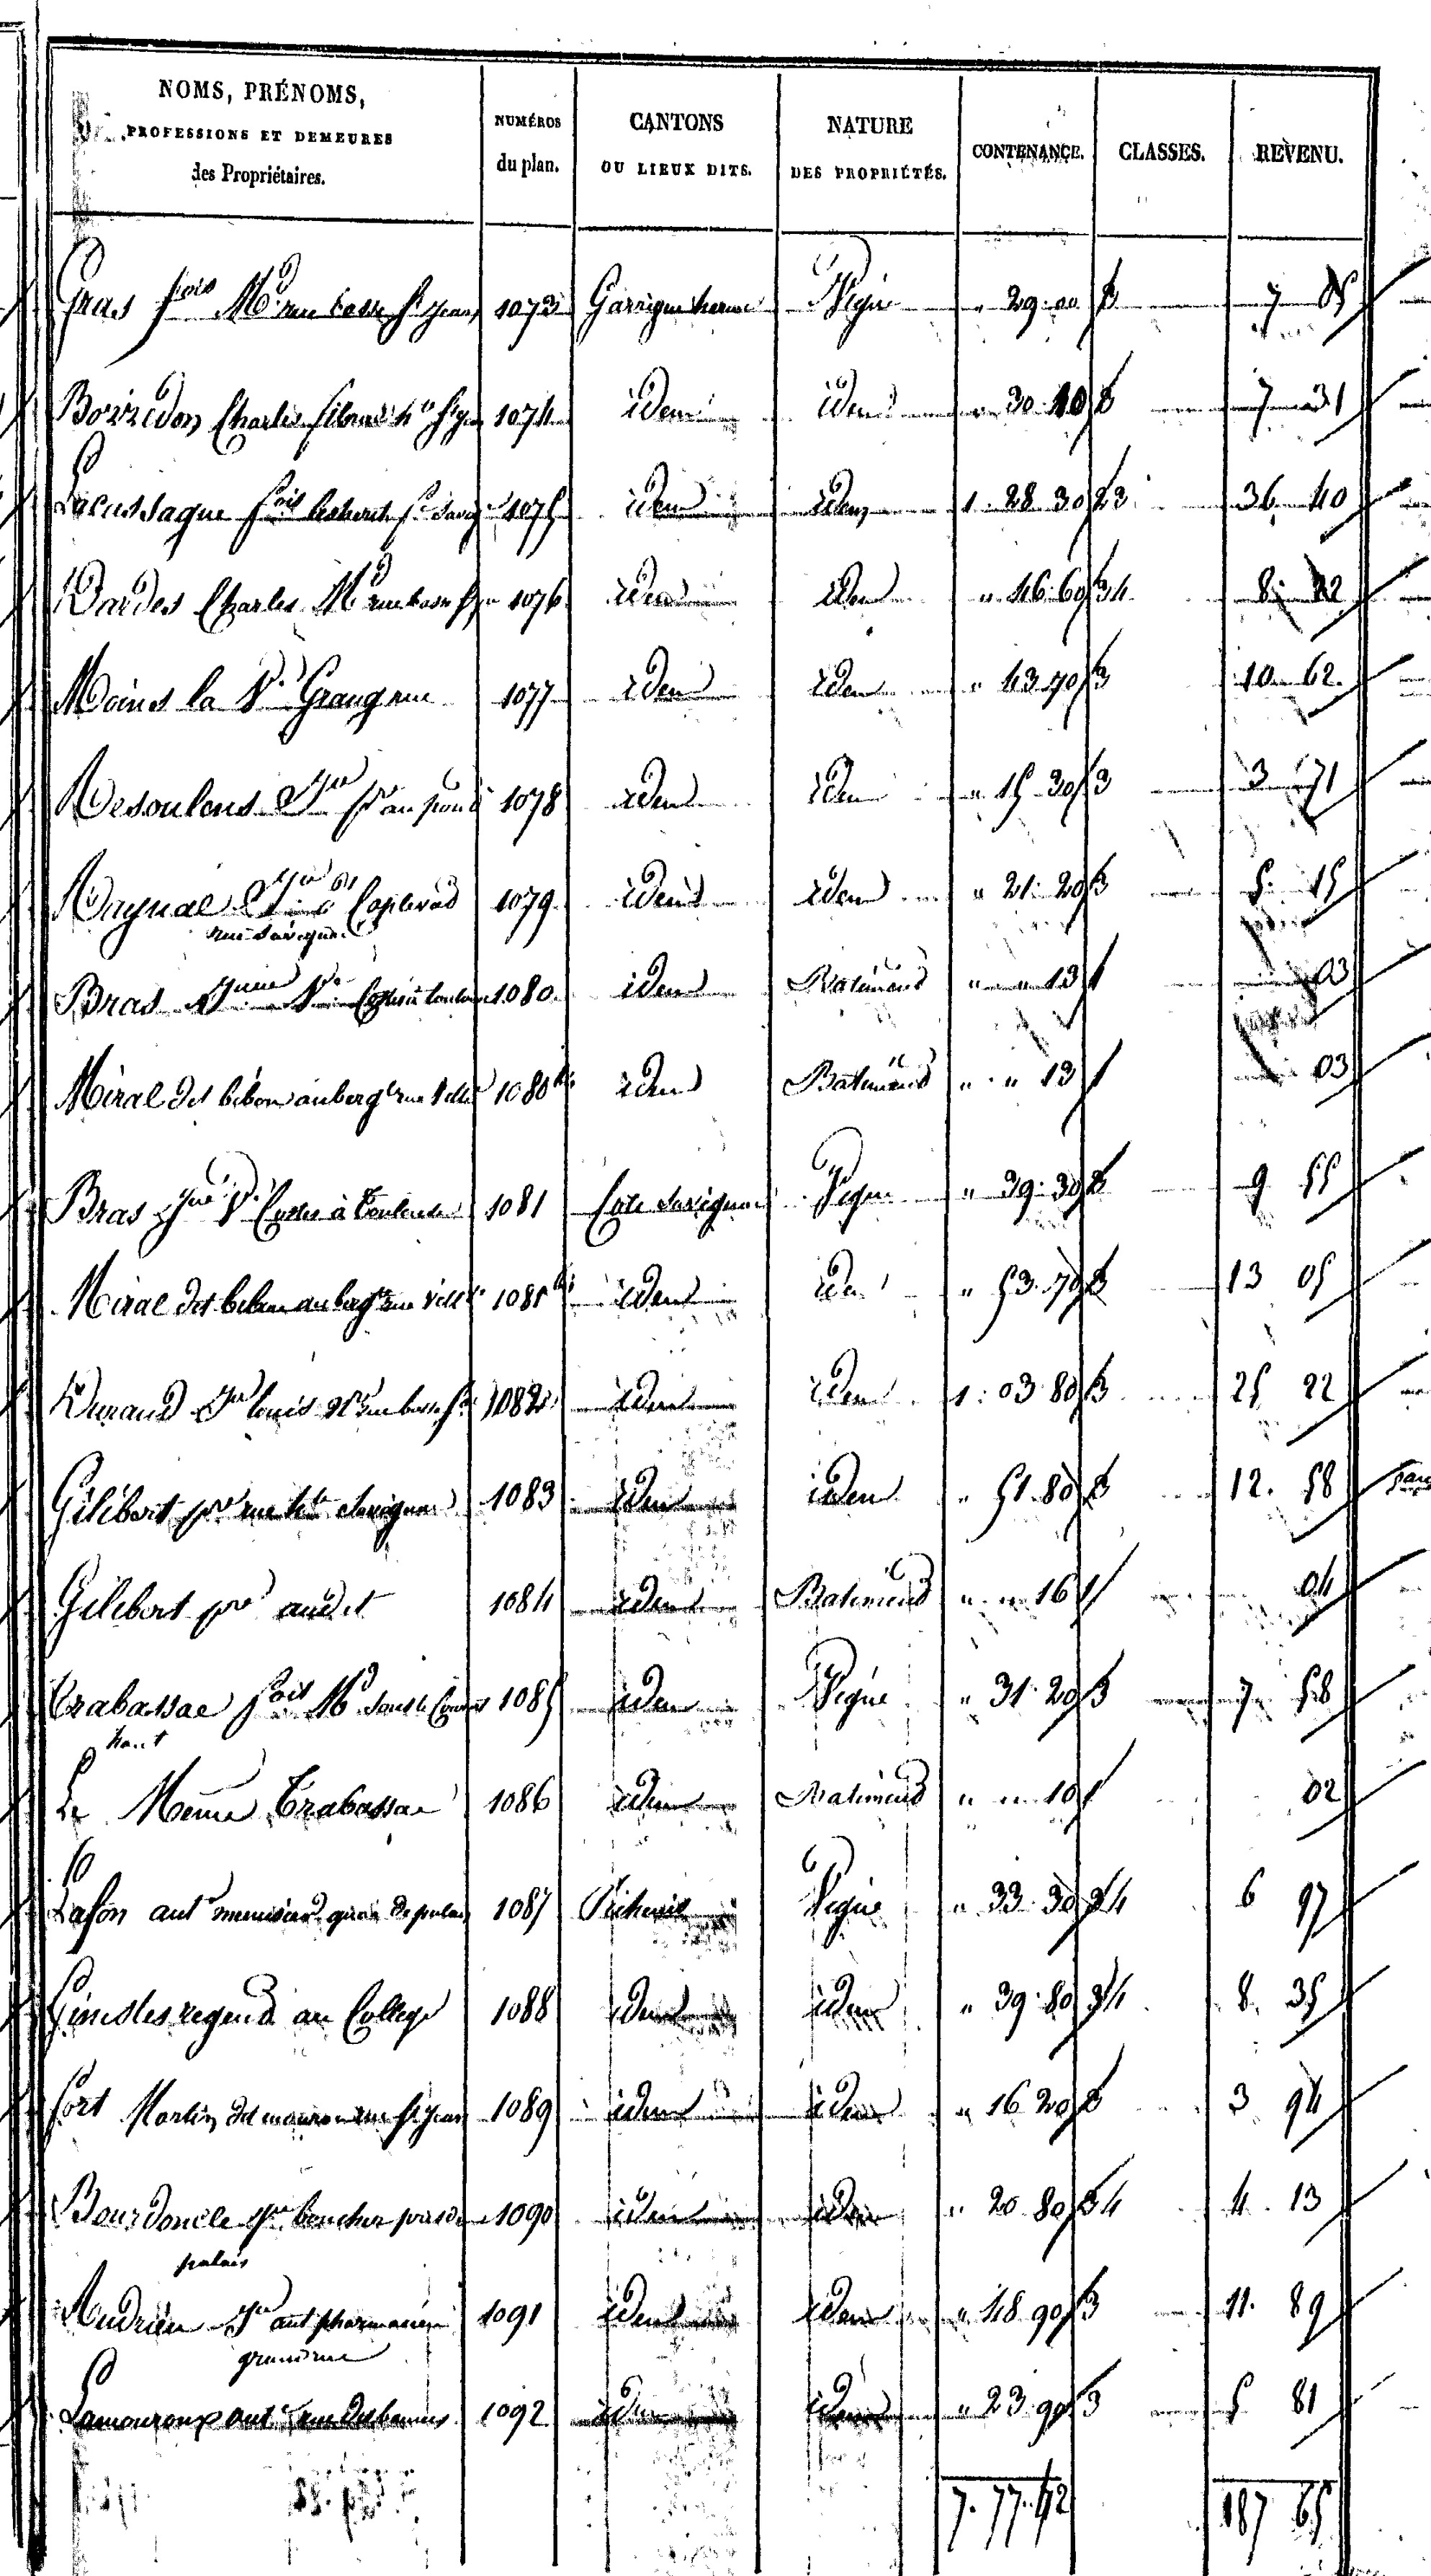 NOMS, PRÉNOMS,
PROFESSIONS ET DEMEURES
des Propriétaires.
NUMÉROS
du plan.
CANTONS
OU LIEUX DITS.
NATURE
DES PROPRIÉTÉS.
CONTENANCE.
CLASSES.
REVENU.
Gras fois Md rue basse St Jean 1073 Garrigue Vigne " 29. 3 7
Borredon Charles 1074 idem idem " 30. 10 3 7
Lacassagne fois 1075 idem idem 1. 28. 30 23 36 40
Dardes Charles Md rue basse 1076 idem idem " 46. 60 34 8.
Moins la Ve Grangeneuve 1077 idem idem " 43. 70 3 10 62
Desoulens 1078 idem idem " 15. 30 3 3 71
Raynal 1079 idem idem " 21. 20 3 5. 15
rue Savignac
Bras Ve Costes à Toulouse 1080 idem Batiment " " 13 1 03
Miral dit bébou auberge rue Ville 1080 bis idem Batiment " " 13 1 03
Bras Ve Costes à Toulouse 1081 Cote Savignac Vigne " 39. 30 3 9 55
Miral dit bebou auberge rue Ville 1081 bis idem idem " 53. 70 3 13 05
Durand Jn louis Md rue basse 1082 idem idem 1. 03. 80 3 25 22
Gilibert pre rue hte Savignac 1083 idem idem " 51. 80 3 12. 58
Gilibert pre audit 1084 idem Batiment " " 16 1 04
Trabassac fois Md sous le Couvert 1085 idem Vigne " 31. 20 3 7 58
haut
Le Meme Trabassac 1086 idem Batiment " " 10 1 02
Lafon ant menuisier 1087 Vigne " 33. 30 34 6 97
Ginestes regend au College 1088 idem idem " 39. 80 34 8. 35
fort Martin dit rue St Jean 1089 idem idem " 16. 20 3 3 94
Bourdoncle boucher 1090 idem idem " 20. 80 34 4. 13
palais
Andrieu ant pharmacien 1091 idem idem " 48. 90 3 11. 89
grand rue
Lamouroux ant rue 1092 idem idem " 23. 90 3 5 81
7. 77. 42 187 65